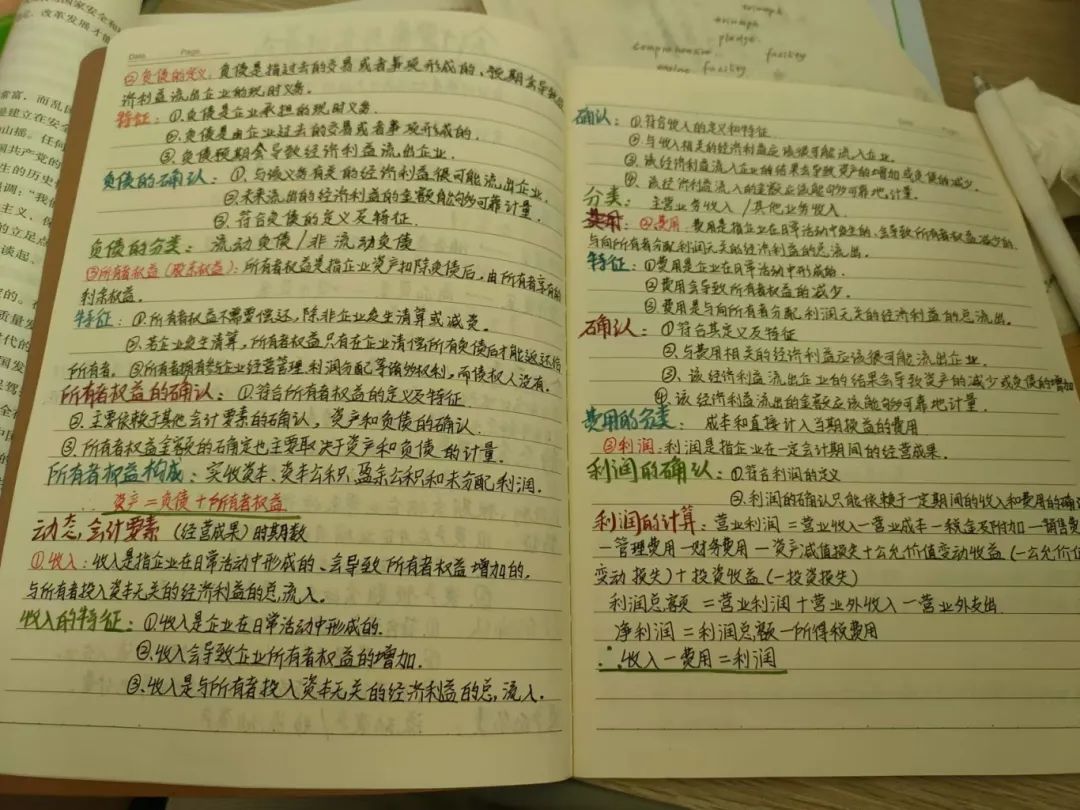 Date Page
②负债的定义：负债是指过去的交易或者事项形成的、预期会导致经
济利益流出企业的现时义务。
特征：①负债是企业承担的现时义务.
②负债是由企业过去的交易或者事项形成的.
③负债预期会导致经济利益流出企业.
负债的确认：①与该义务有关的经济利益很可能流出企业.
②未来流出的经济利益的金额能够可靠计量.
③符合负债的定义及特征.
负债的分类：流动负债/非流动负债
③所有者权益(股东权益)：所有者权益是指企业资产扣除负债后，由所有者享有的
剩余权益.
特征：①所有者权益不需要偿还，除非企业发生清算或减资。
②若企业发生清算，所有者权益只有在企业清偿所有负债后才能返还给
所有者。③所有者拥有参与企业经营管理、利润分配等诸多权利，而债权人没有.
所有者权益的确认：①符合所有者权益的定义及特征
②主要依赖于其他会计要素的确认，资产和负债的确认.
③所有者权益金额的确定也主要取决于资产和负债的计量.
所有者权益构成：实收资本、资本公积、盈余公积和未分配利润.
资产=负债+所有者权益
动态会计要素(经营成果)时期数
①收入：收入是指企业在日常活动中形成的、会导致所有者权益增加的，
与所有者投入资本无关的经济利益的总流入.
收入的特征：①收入是企业在日常活动中形成的.
②收入会导致企业所有者权益的增加.
③收入是与所有者投入资本无关的经济利益的总流入.
确认：①符合收入的定义和特征
②与收入相关的经济利益应该很可能流入企业.
③该经济利益流入企业的结果会导致资产的增加或负债的减少.
④该经济利益流入的金额应该能够可靠地计量.
分类：主营业务收入/其他业务收入.
费用：②费用.费用是指企业在日常活动中发生的、会导致所有者权益减少的、
与向所有者分配利润无关的经济利益的总流出.
特征：①费用是企业在日常活动中形成的.
②费用会导致所有者权益的减少.
③费用是与向所有者分配利润无关的经济利益的总流出.
确认：①符合其定义及特征
②与费用相关的经济利益应该很可能流出企业
③该经济利益流出企业的结果会导致资产的减少或负债的增加
④该经济利益流出的金额应该能够可靠地计量.
费用的分类：成本和直接计入当期损益的费用
③利润：利润是指企业在一定会计期间的经营成果.
利润的确认：①符合利润的定义
②利润的确认只能依赖于一定期间的收入和费用的确认
利润的计算：营业利润=营业收入-营业成本-税金及附加-销售费
-管理费用-财务费用-资产减值损失+公允价值变动收益(-公允价值
变动损失)+投资收益(-投资损失)
利润总额=营业利润+营业外收入-营业外支出
净利润=利润总额-所得税费用
∴收入-费用=利润
triumph
triumph
pledge
comprehensive facility
engine facility